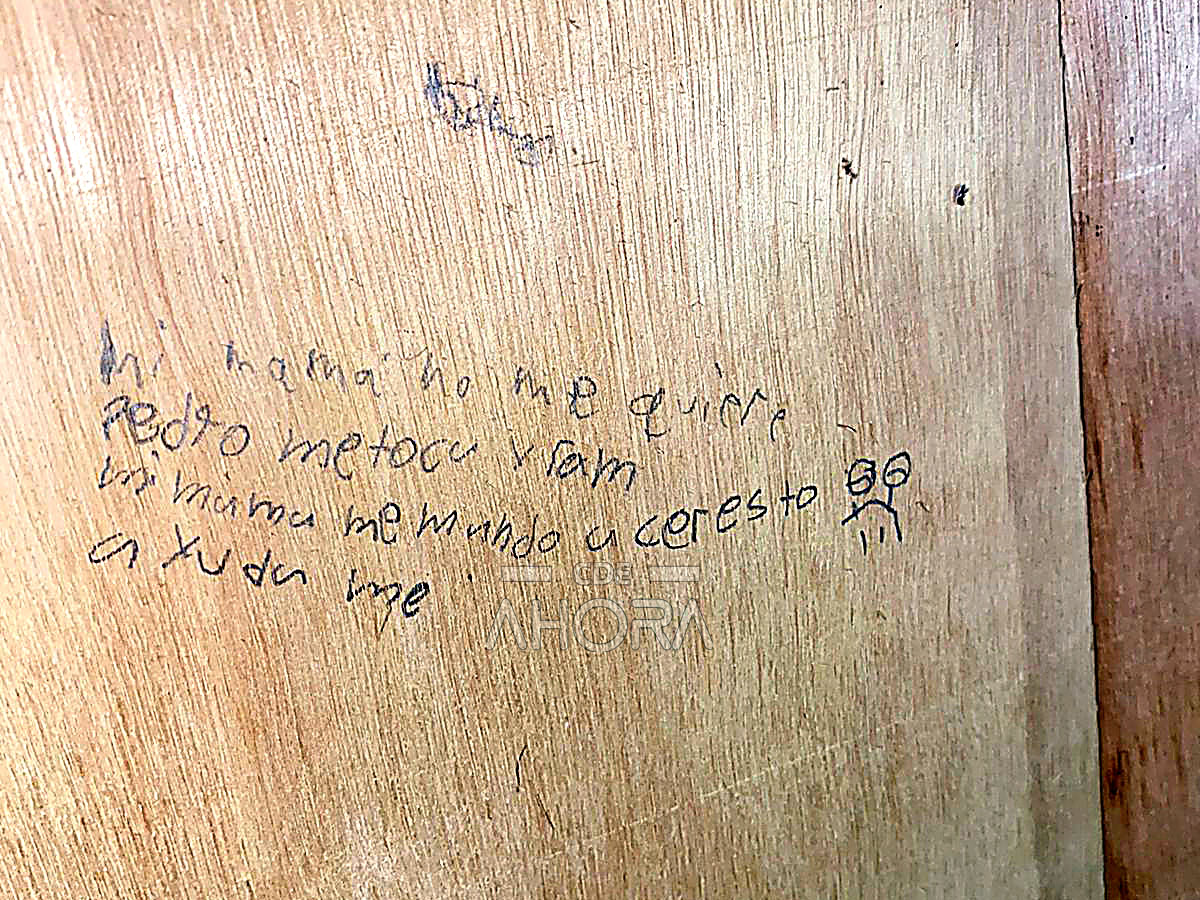 Mi mamá no me quiere
Pedro metoca y fam
mi mama me mando a cer esto
a xuda me
CDE
AHORA